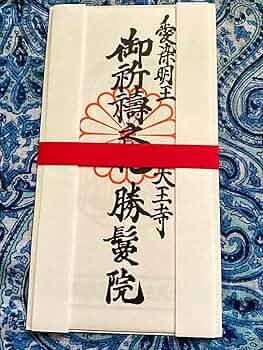 愛染明王 天王寺
御祈禱之 勝鬘院